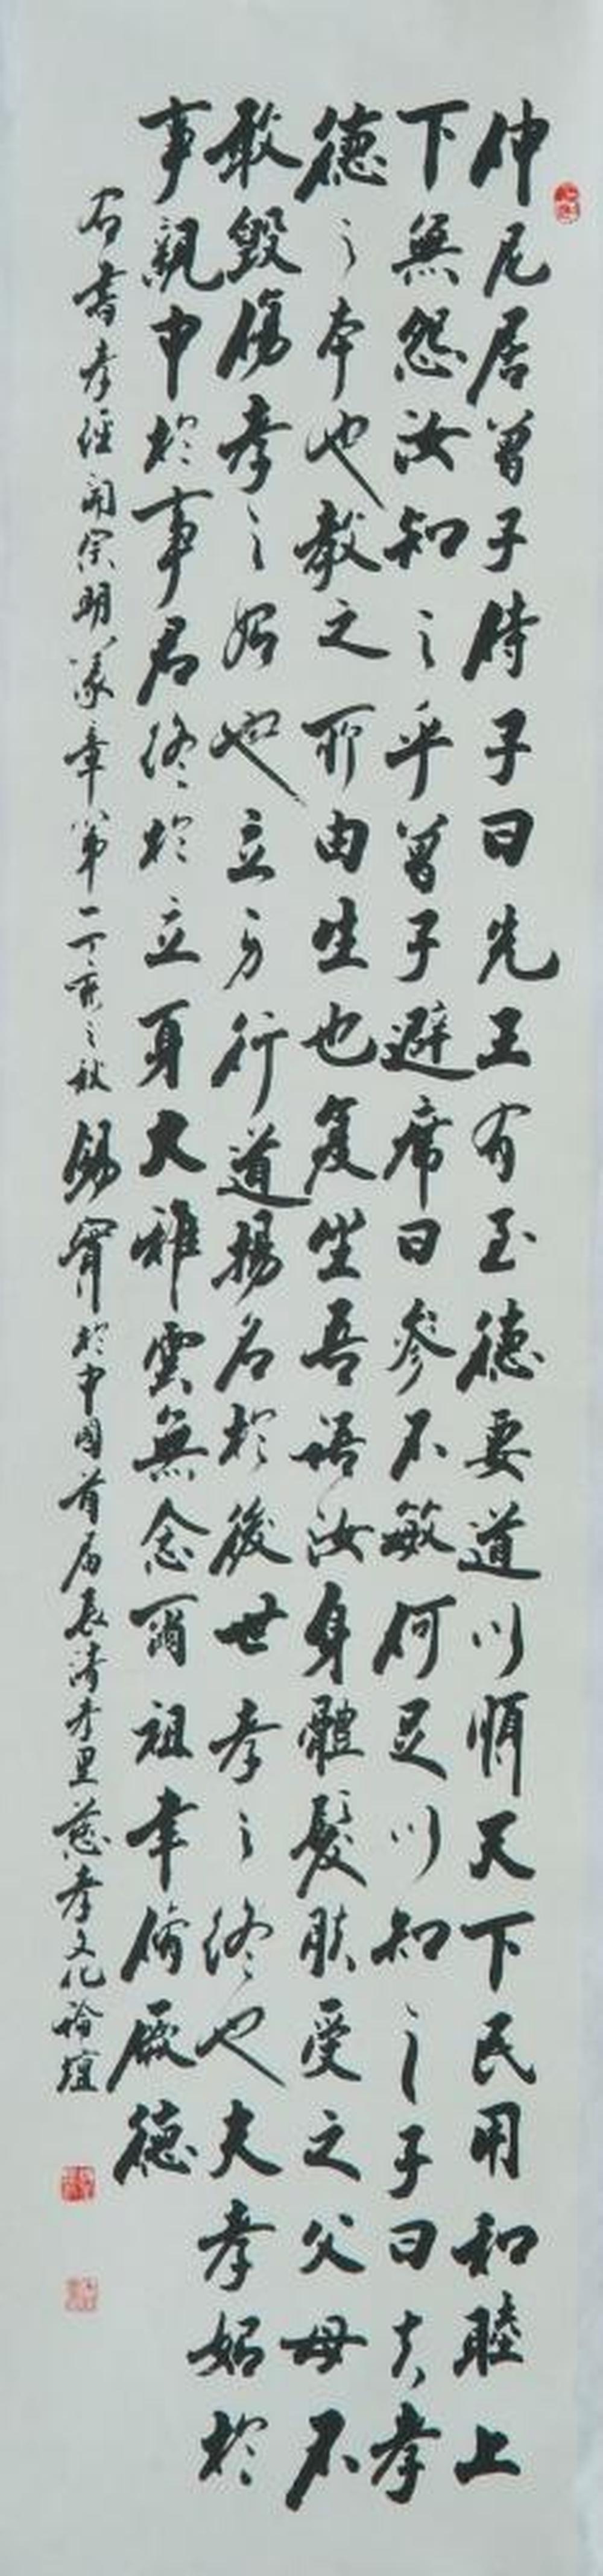 仲尼居曾子侍子曰先王有至德要道以順天下民用和睦上
下無怨汝知之乎曾子避席曰參不敏何足以知之子曰夫孝
德之本也教之所由生也复坐吾語汝身體髮肤受之父母不
敢毀傷孝之始也立身行道揚名於後世孝之終也夫孝始於
事親中於事君終於立身大雅雲無念爾祖聿脩厥德
右書孝經開宗明義章第一丁亥之秋錫於中国首届長清孝里慈孝文化論壇